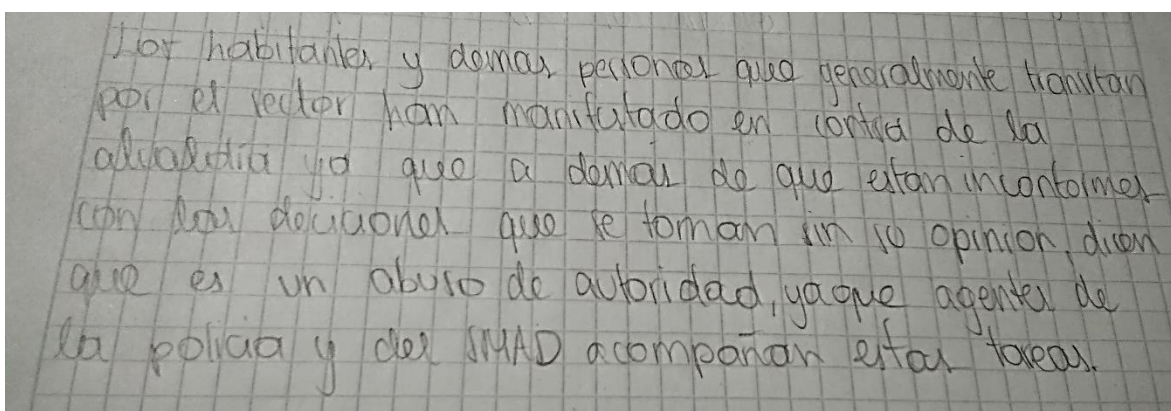 Los habitantes y demas personas que generalmente transitan
por el sector han manifestado en contra de la
alcaldia ya que a demas de que estan inconformes
con las deciciones que se toman sin su opinion, dicen
que es un abuso de autoridad, ya que agentes de
la policia y del SMAD acompañan estas tareas.